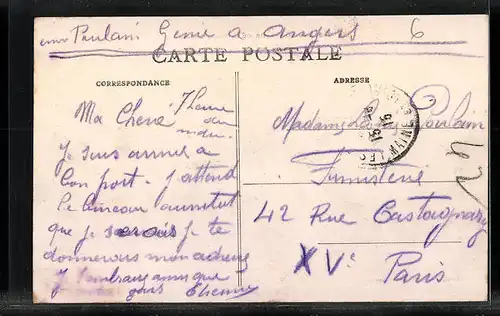 env Poulain Genie a Angers 6
CARTE POSTALE
CORRESPONDANCE
ADRESSE
Ma Chere 7 heure du
Je suis arrivé a
bon port. J'attend
le bureau aussitot
que je serais je te
donnerais mon adresse
Je t'embrasse ainsi que
Etienne
Madame Poulain
Fumisterie
42 Rue Castagnary
XVe
Paris